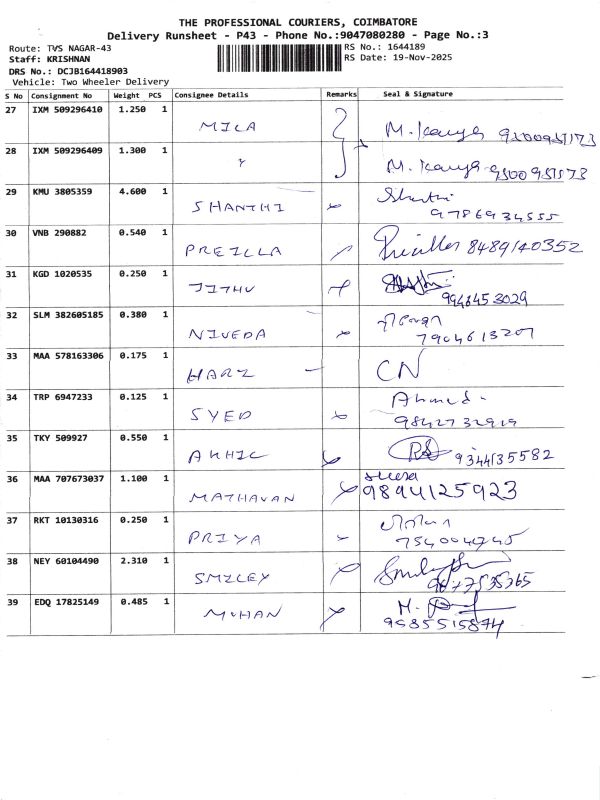 THE PROFESSIONAL COURIERS, COIMBATORE
Delivery Runsheet - P43 - Phone No.:9047080280 - Page No.:3
Route: TVS NAGAR-43 RS No.: 1644189
Staff: KRISHNAN RS Date: 19-Nov-2025
DRS No.: DCJB164418903
Vehicle: Two Wheeler Delivery
S No Consignment No Weight PCS Consignee Details Remarks Seal & Signature
27 IXM 509296410 1.250 1 MILA M. Kavya 9500951173
28 IXM 509296409 1.300 1 " M. Kavya 9500951173
29 KMU 3805359 4.600 1 SHANTHI Shanthi
9786934555
30 VNB 290882 0.540 1 PREILLA 8489140352
31 KGD 1020535 0.250 1 JITHU
9946453029
32 SLM 382605185 0.380 1 NIVEDA
7904613207
33 MAA 578163306 0.175 1 HARI CN
34 TRP 6947233 0.125 1 SYED Ahmed
9842732919
35 TKY 509927 0.550 1 AKHIL RS 9344135582
36 MAA 707673037 1.100 1 MATHAVAN
9894125923
37 RKT 10130316 0.250 1 PRIYA
7540044745
38 NEY 60104490 2.310 1 SMILEY
39 EDQ 17825149 0.485 1 MOHAN M.
9585515874